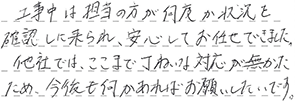 工事中は担当の方が何度か状況を
確認しに来られ、安心してお任せできました。
他社では、ここまでていねいな対応が無かった
ため、今後も何かあればお願いしたいです。